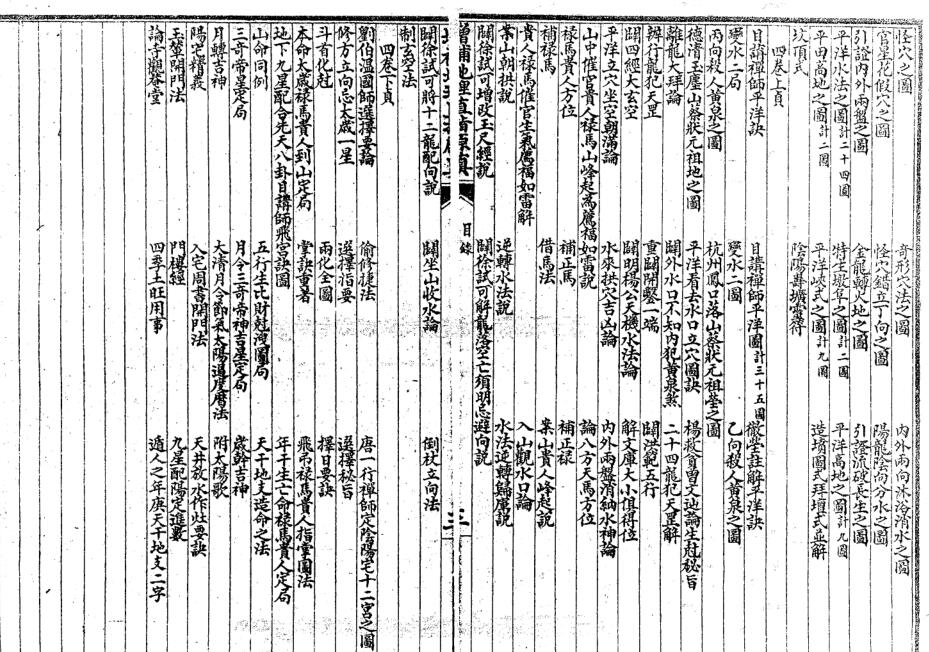 怪穴之圖 奇形穴法之圖 內外兩向沐浴消水之圖
官星花假穴之圖 怪穴錯立丁向之圖 陽龍陰向分水之圖
引證內外兩盤之圖 金龍轉火地之圖 引證流破長生之圖
平洋水法之圖計二十四圖 特生墩阜之圖計二圖 平洋高地之圖計九圖
平田高地之圖計二圖 平洋峽式之圖計九圖 造墳圖式拜壇式並解
坟頂式 陰陽壽壙靈符
四卷上頁
目講禪師平洋訣 目講禪師平洋圖計三十五圖 徵塋註解平洋訣
變水二局 變水二圖 乙向殺人黃泉之圖
丙向殺人黃泉之圖 杭州鳳口落山蔡狀元祖塋之圖
德清玉塵山蔡狀元祖地之圖 平洋看去水口立穴圖訣 楊救貧曾文地論生尅秘旨
離龍大拜論 闢外水口不知內犯黃泉煞 二十四龍犯天罡解
辨行龍犯天罡 重闢開鑿一端 闢洪範五行
闢四經大玄空 闢明楊公天機水法論 解文庫大小俱得位
平洋立穴坐空朝滿論 水來扶穴吉凶論 內外兩盤消納水神論
山中催官貴人祿馬山峰起為應福如雷說 論八方天馬方位
祿馬貴人方位 補正馬 補正祿
補祿馬 借馬法 案山貴人峰起說
貴人祿馬催官生氣應福如雷解 入山觀水口論
案山朝拱說 逆轉水法說 水法逆轉歸庫說
闢徐試可增改玉尺經說 闢徐試可解龍落空亡須明忌避向說
增補地理直指原真 目錄 三
闢徐試可將十二龍配向說 闢坐山收水論 倒杖立向法
制玄空法
四卷下頁
劉伯溫國師選擇要論 偷修捷法 唐一行禪師定陰陽宅十二宮之圖
修方立向忌太歲一星 選擇指要 選擇秘旨
斗首化冠 兩化全圖 擇日要訣
本命太歲祿馬貴人到山定局 堂訣重者 飛弔祿馬貴人指掌圖法
地下九星配合先天八卦目講師飛宮訣圖 年干生亡命祿馬貴人定局
山命同例 五行生比財尅洩圖局 天干地支造命之法
三奇帝星定局 月令三奇帝神吉星定局 歲幹吉神
月轉吉神 大清月令節氣太陽過度曆法 附太陽歌
陽宅精義 入宅周書開門法 天井放水作灶要訣
玉輦開門法 門樓經 九星配陽定進數
論寺觀菴堂 四季土旺用事 遁人之年庚天干地支二字